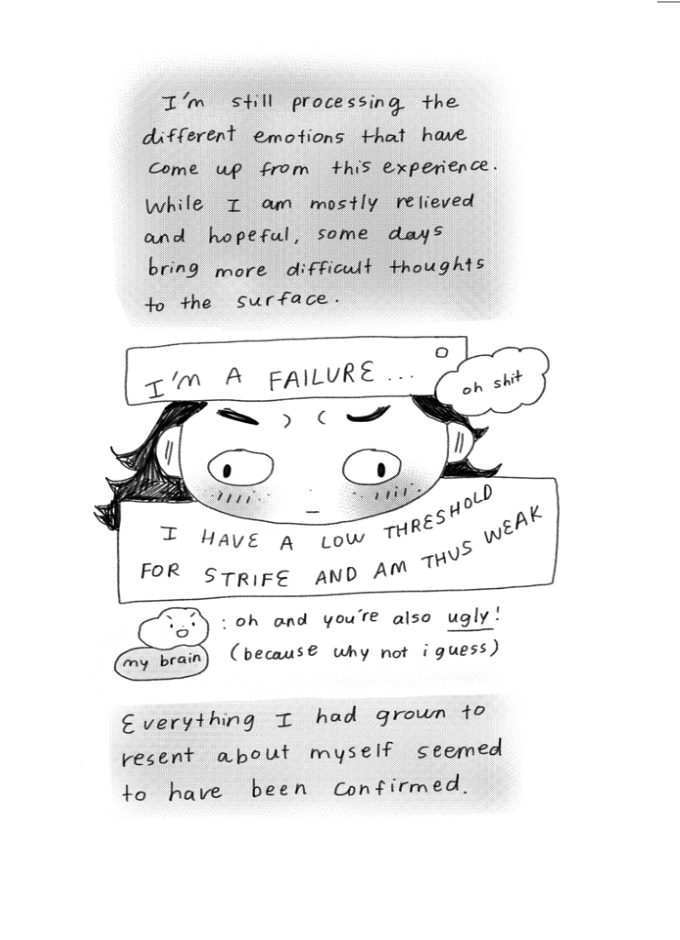 I'm still processing the
different emotions that have
come up from this experience.
While I am mostly relieved
and hopeful, some days
bring more difficult thoughts
to the surface.
I'M A FAILURE...
oh shit
I HAVE A LOW THRESHOLD
FOR STRIFE AND AM THUS WEAK
: oh and you're also ugly!
my brain (because why not i guess)
Everything I had grown to
resent about myself seemed
to have been confirmed.